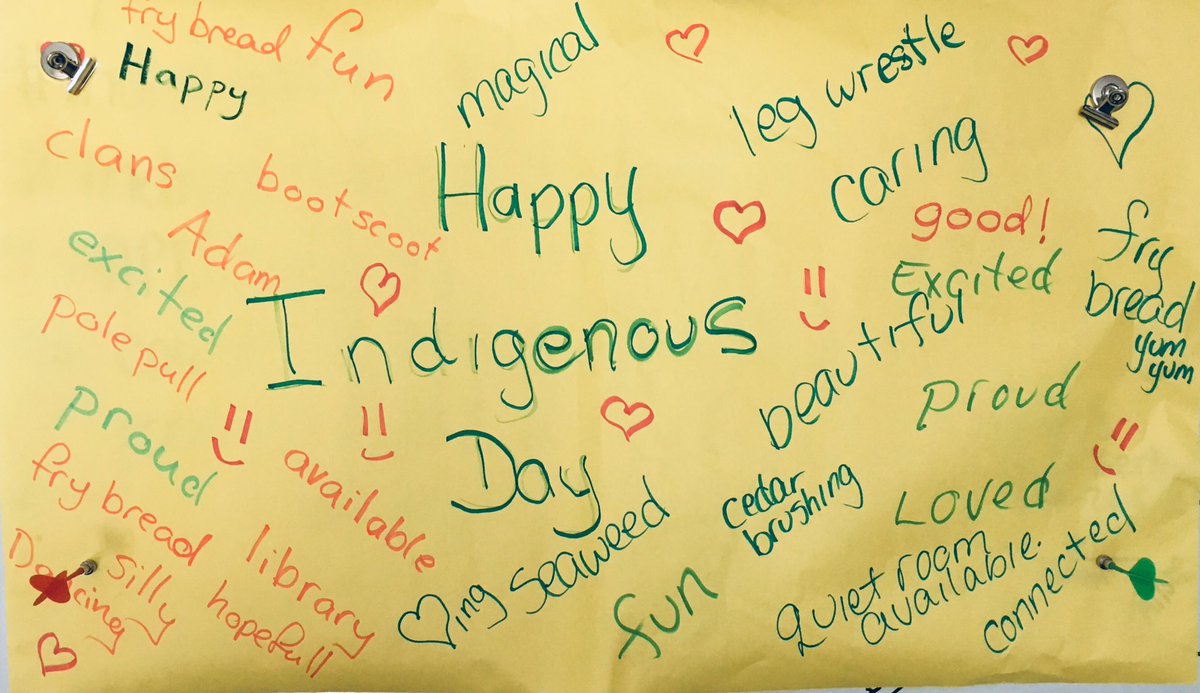 fry bread
fun
Happy
magical
leg wrestle
clans
bootscoot
Happy
caring
good!
Adam
excited
Indigenous
Excited
fry
bread
yum
yum
pole pull
beautiful
proud
proud
Day
available
cedar
brushing
Loved
fry bread
library
ing seaweed
Dancing
silly
hopefull
fun
Quiet room
available.
connected